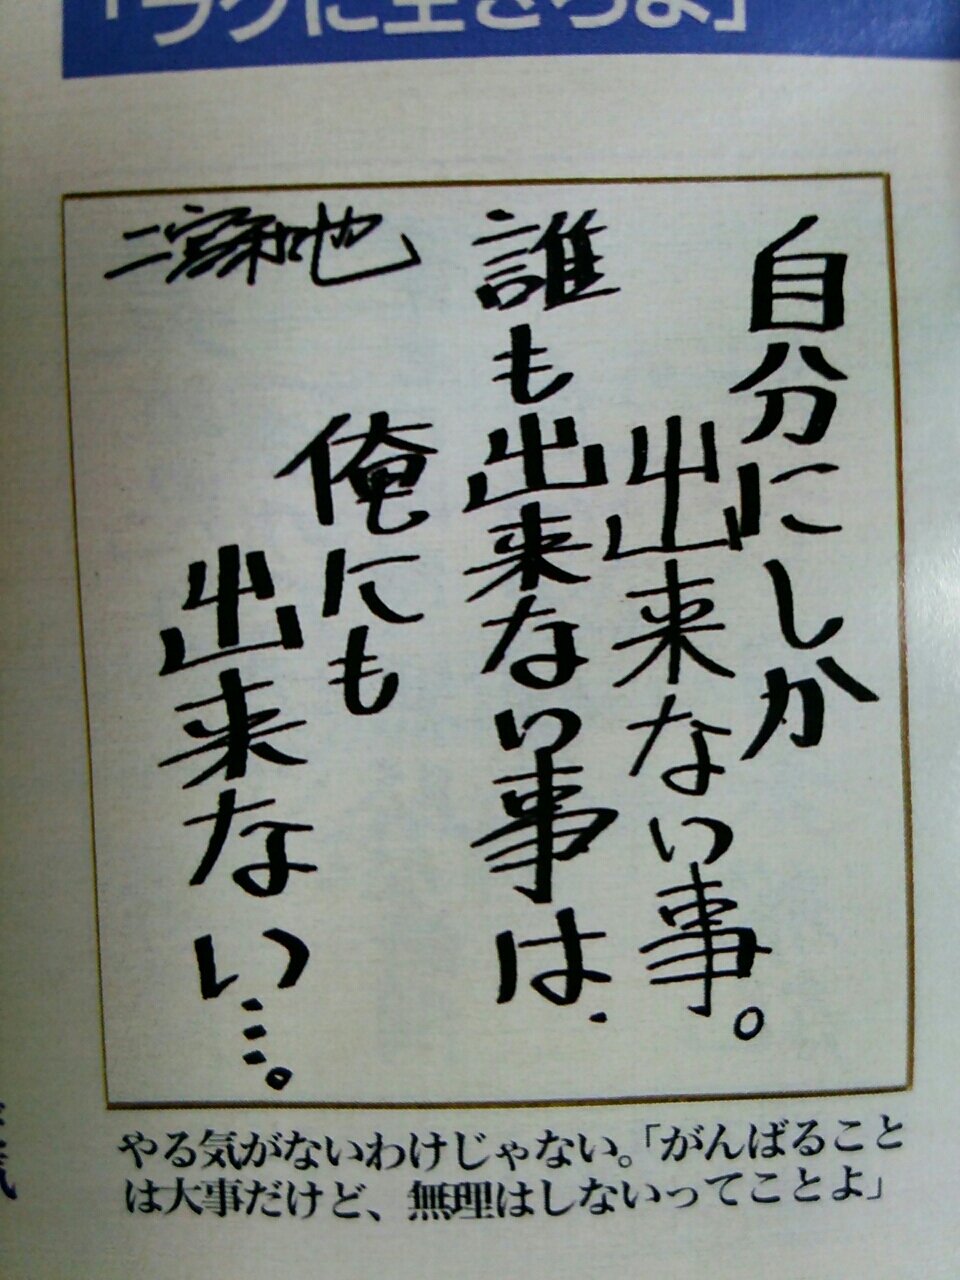 「ラクに生きろよ」
自分にしか
出来ない事。
誰も出来ない事は、
俺にも
出来ない…。
二宮和也
やる気がないわけじゃない。「がんばること
は大事だけど、無理はしないってことよ」